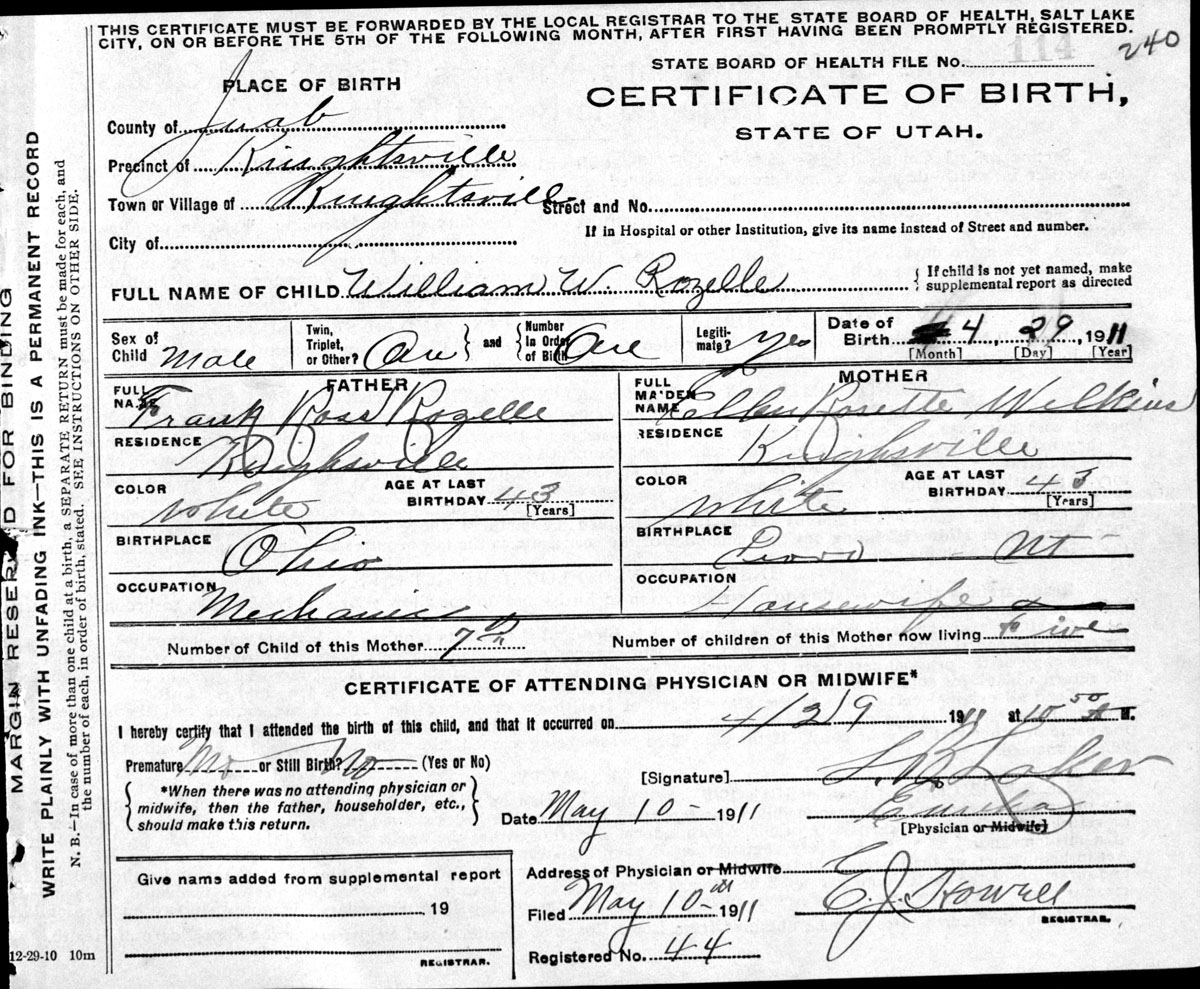 THIS CERTIFICATE MUST BE FORWARDED BY THE LOCAL REGISTRAR TO THE STATE BOARD OF HEALTH, SALT LAKE
CITY, ON OR BEFORE THE 5TH OF THE FOLLOWING MONTH, AFTER FIRST HAVING BEEN PROMPTLY REGISTERED.
240
STATE BOARD OF HEALTH FILE No. 114
PLACE OF BIRTH
CERTIFICATE OF BIRTH,
STATE OF UTAH.
County of Juab
Precinct of Knightsville
Town or Village of Knightsville Street and No.
City of
If in Hospital or other Institution, give its name instead of Street and number.
FULL NAME OF CHILD William W. Rozelle { If child is not yet named, make
supplemental report as directed
Sex of Child Male
Twin, Triplet, or Other? One } and { Number In Order of Birth One
Legiti-mate? Yes
Date of Birth 4, 29, 1911
[Month] [Day] [Year]
FATHER
FULL NAME Frank Ross Rozelle
RESIDENCE Knighsville
COLOR White AGE AT LAST BIRTHDAY 43 [Years]
BIRTHPLACE Ohio
OCCUPATION Mechanic
MOTHER
FULL MAIDEN NAME Ellen Rosette Wilkins
RESIDENCE Knighsville
COLOR White AGE AT LAST BIRTHDAY 43 [Years]
BIRTHPLACE Provo - Ut -
OCCUPATION Housewife
Number of Child of this Mother 7th Number of children of this Mother now living Five
CERTIFICATE OF ATTENDING PHYSICIAN OR MIDWIFE*
I hereby certify that I attended the birth of this child, and that it occurred on 4/29 1911 at 10 50 A M.
Premature No or Still Birth? No (Yes or No)
{ *When there was no attending physician or
midwife, then the father, householder, etc.,
should make this return. }
[Signature]
Date May 10- 1911 Eureka
[Physician or Midwife]
Address of Physician or Midwife
Filed May 10-th 1911 E. J. Howell
REGISTRAR.
Registered No. 44
Give name added from supplemental report
, 19
REGISTRAR.
12-29-10 10m
MARGIN RESERVED FOR BINDING
WRITE PLAINLY WITH UNFADING INK—THIS IS A PERMANENT RECORD
N. B.—In case of more than one child at a birth, a SEPARATE RETURN must be made for each, and
the number of each, in order of birth, stated. SEE INSTRUCTIONS ON OTHER SIDE.